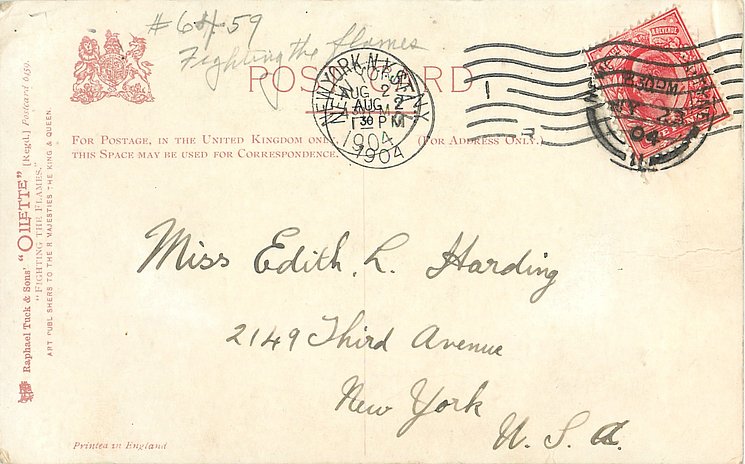 #6459
Fighting the flames
POST CARD
NEW YORK, N.Y.
AUG 2
1 30 PM
1904
1
R
REVENUE
04
FOR POSTAGE, IN THE UNITED KINGDOM ONLY, (FOR ADDRESS ONLY.)
THIS SPACE MAY BE USED FOR CORRESPONDENCE.
Raphael Tuck & Sons' "OILETTE" [Regd.] Postcard 6459.
"FIGHTING THE FLAMES."
ART PUBLISHERS TO THEIR MAJESTIES THE KING & QUEEN.
Miss Edith. L. Harding
2149 Third Avenue
New York
U. S. A.
Printed in England